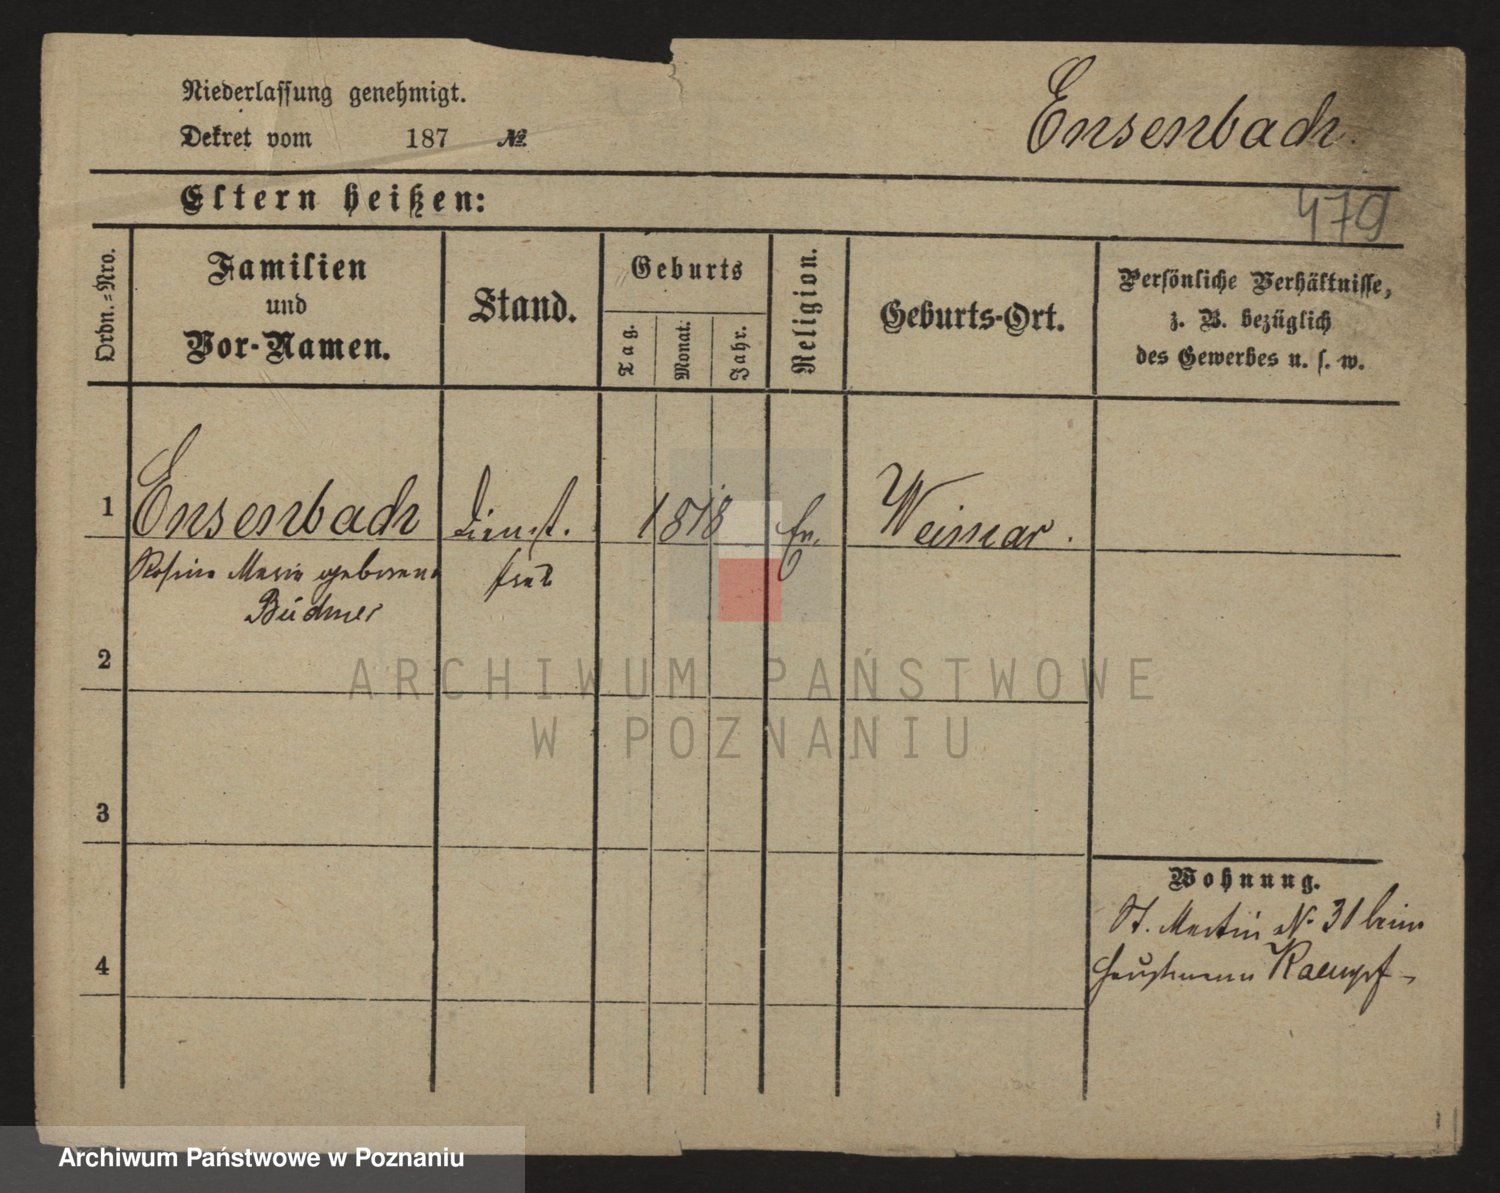 Niederlassung genehmigt.
Dekret vom 187 №
Ensenbach.
479
Eltern heißen:
Ordn.-Nro.
Familien
und
Vor-Namen.
Stand.
Geburts
Tag.
Monat.
Jahr.
Religion.
Geburts-Ort.
Persönliche Verhältnisse,
z. B. bezüglich
des Gewerbes u. s. w.
1 Ensenbach Dienst. 1818 Ev. Weimar.
Rosine Marie geborene frau
Büdner
2
3
4
Wohnung.
St. Martin № 31 beim
Hauptmann Kaempf
ARCHIWUM PAŃSTWOWE
W POZNANIU
Archiwum Państwowe w Poznaniu